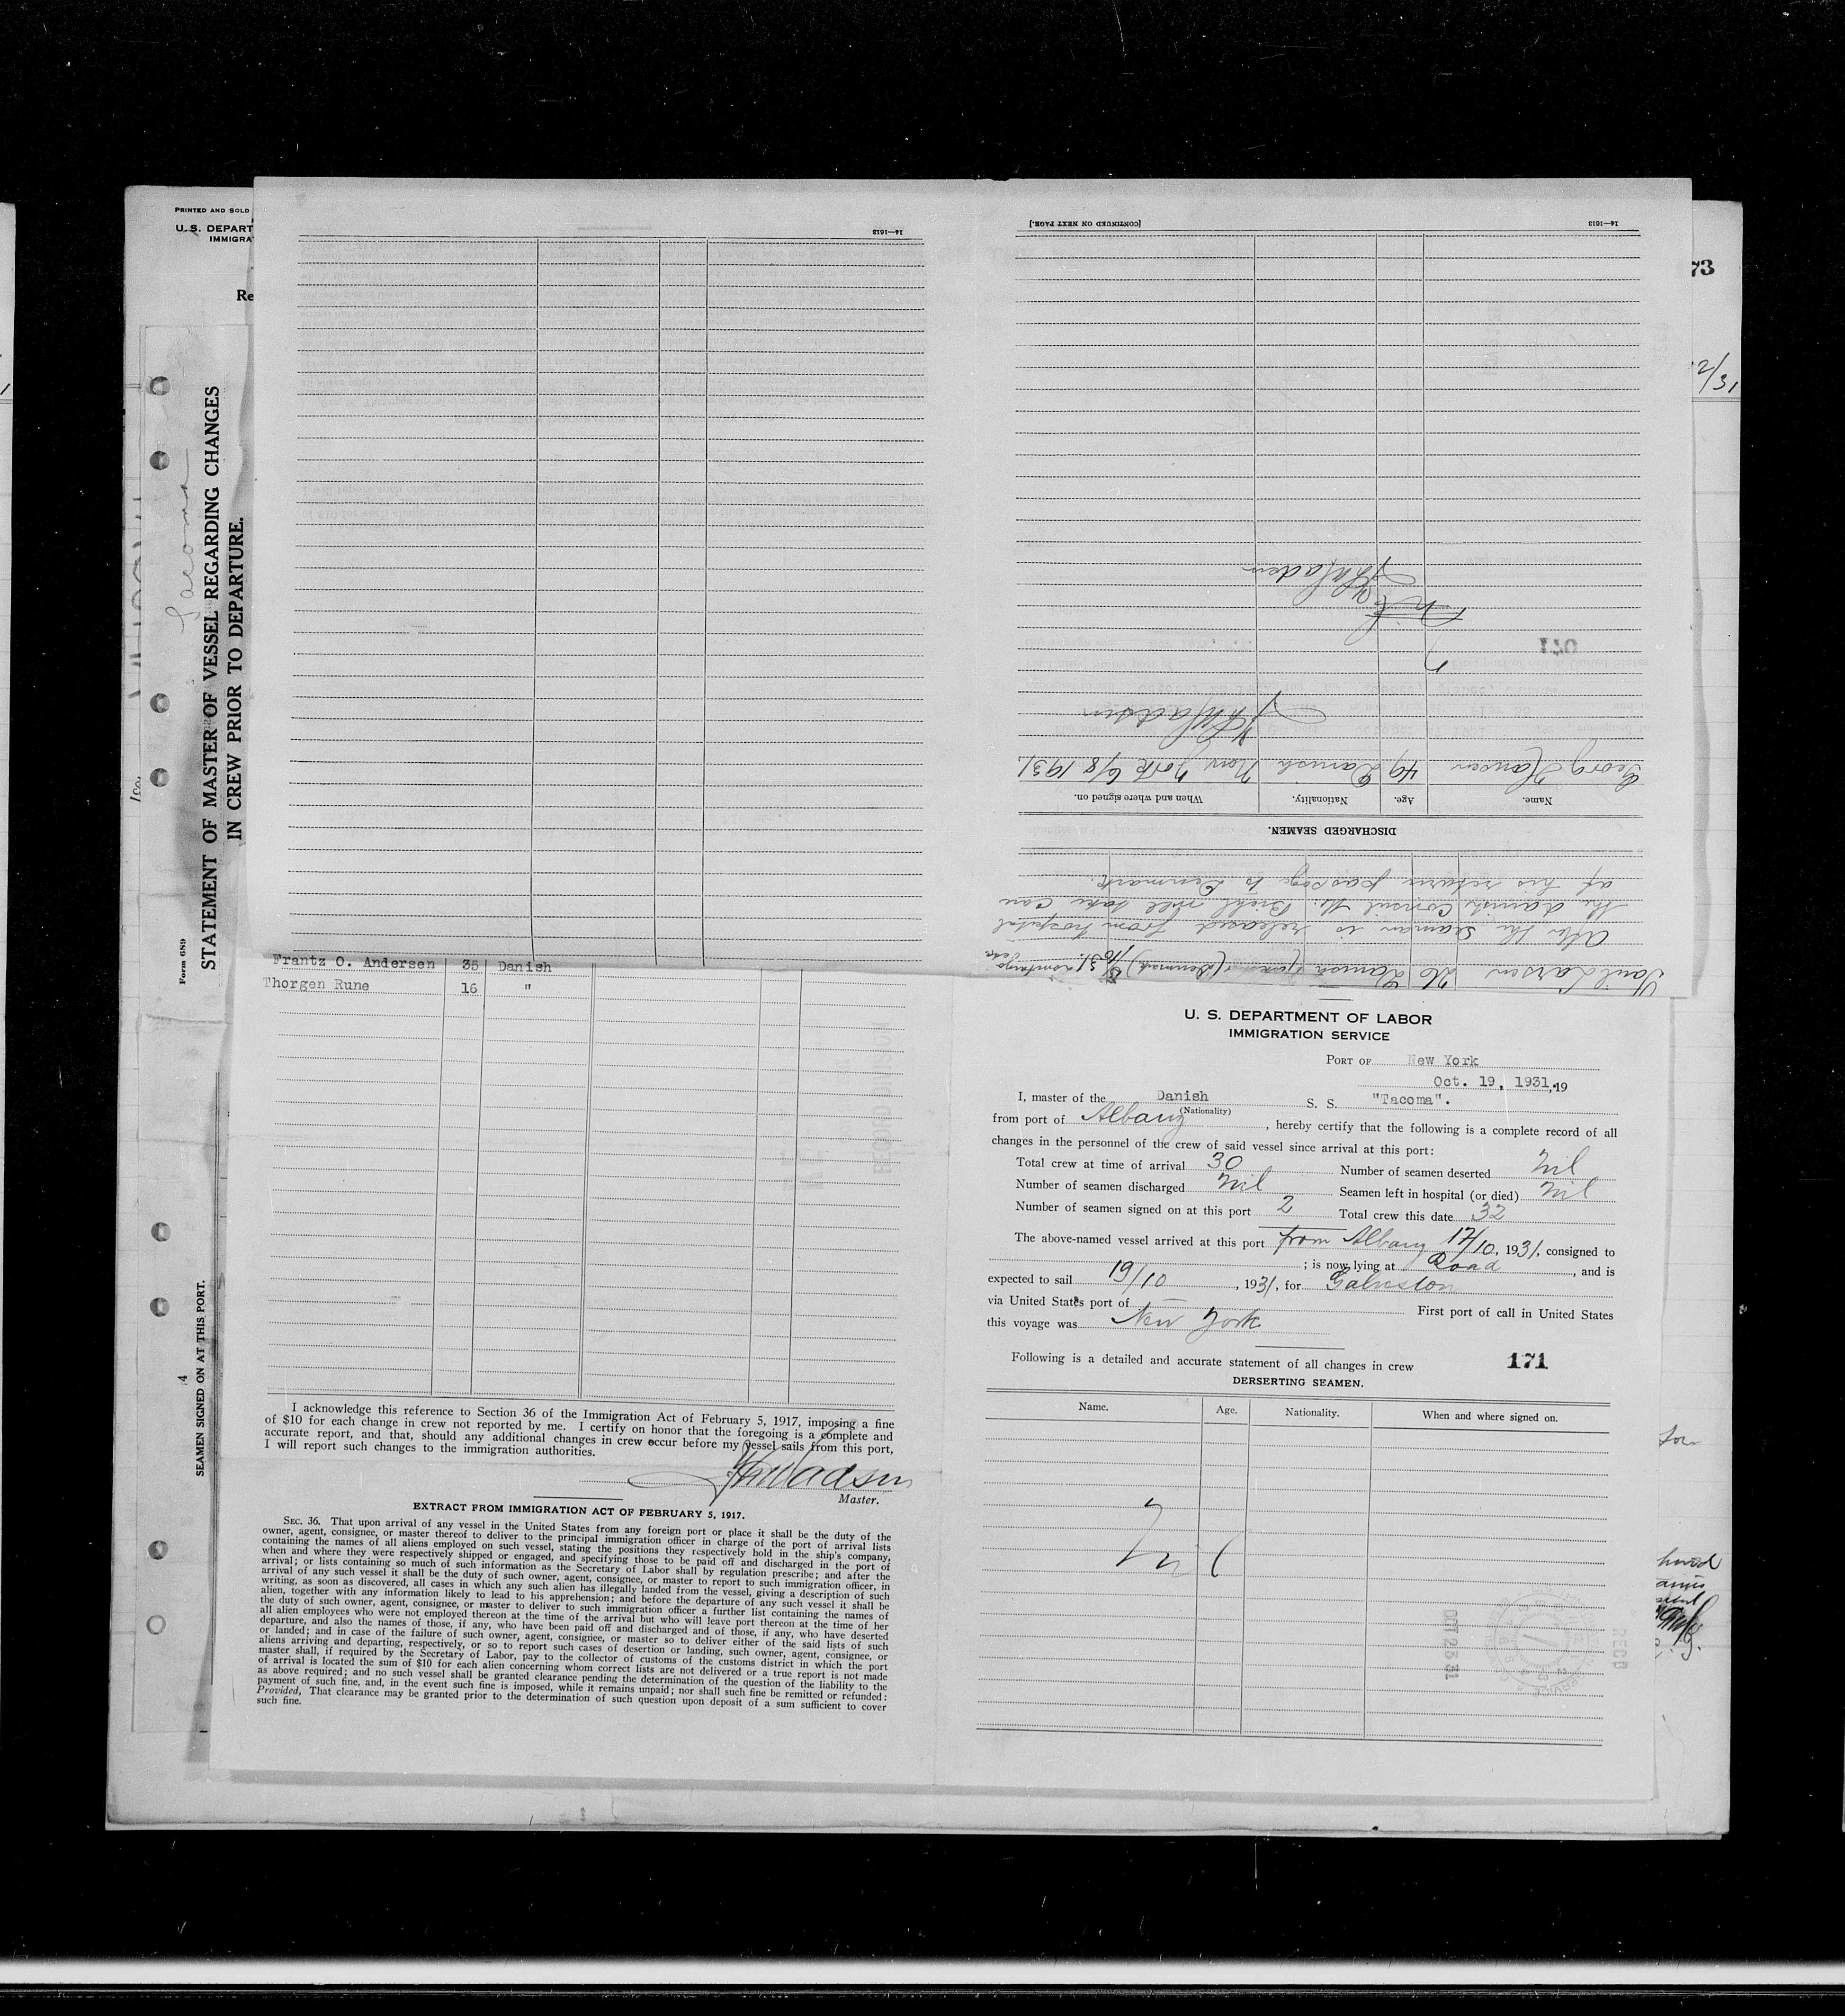 PRINTED AND SOLD
U.S. DEPART
IMMIGRA
Re
Form 689
STATEMENT OF MASTER OF VESSEL REGARDING CHANGES
IN CREW PRIOR TO DEPARTURE.
Tacoma
14—1613
[CONTINUED ON NEXT PAGE.]
14—1613
73
2/31
Paul Larsen 26 Danish
After the seaman is released from hospital
the danish Consul Mr. will take care
of his return passage to Denmark.
DISCHARGED SEAMEN.
Name. Age. Nationality. When and where signed on.
Georg Hansen 49 Danish New York 6/8 1931
Nil
SEAMEN SIGNED ON AT THIS PORT.
Frantz O. Andersen 35 Danish
Thorgen Rune 16 "
I acknowledge this reference to Section 36 of the Immigration Act of February 5, 1917, imposing a fine
of $10 for each change in crew not reported by me. I certify on honor that the foregoing is a complete and
accurate report, and that, should any additional changes in crew occur before my vessel sails from this port,
I will report such changes to the immigration authorities.
Master.
EXTRACT FROM IMMIGRATION ACT OF FEBRUARY 5, 1917.
SEC. 36. That upon arrival of any vessel in the United States from any foreign port or place it shall be the duty of the
owner, agent, consignee, or master thereof to deliver to the principal immigration officer in charge of the port of arrival lists
containing the names of all aliens employed on such vessel, stating the positions they respectively hold in the ship's company,
when and where they were respectively shipped or engaged, and specifying those to be paid off and discharged in the port of
arrival; or lists containing so much of such information as the Secretary of Labor shall by regulation prescribe; and after the
arrival of any such vessel it shall be the duty of such owner, agent, consignee, or master to report to such immigration officer, in
writing, as soon as discovered, all cases in which any such alien has illegally landed from the vessel, giving a description of such
alien, together with any information likely to lead to his apprehension; and before the departure of any such vessel it shall be
the duty of such owner, agent, consignee, or master to deliver to such immigration officer a further list containing the names of
all alien employees who were not employed thereon at the time of the arrival but who will leave port thereon at the time of her
departure, and also the names of those, if any, who have been paid off and discharged and of those, if any, who have deserted
or landed; and in case of the failure of such owner, agent, consignee, or master so to deliver either of the said lists of such
aliens arriving and departing, respectively, or so to report such cases of desertion or landing, such owner, agent, consignee, or
master shall, if required by the Secretary of Labor, pay to the collector of customs of the customs district in which the port
of arrival is located the sum of $10 for each alien concerning whom correct lists are not delivered or a true report is not made
as above required; and no such vessel shall be granted clearance pending the determination of the question of the liability to the
payment of such fine, and, in the event such fine is imposed, while it remains unpaid; nor shall such fine be remitted or refunded:
Provided, That clearance may be granted prior to the determination of such question upon deposit of a sum sufficient to cover
such fine.
U. S. DEPARTMENT OF LABOR
IMMIGRATION SERVICE
PORT OF New York
Oct. 19, 1931, 19
I, master of the Danish S. S. "Tacoma".
(Nationality)
from port of Albany, hereby certify that the following is a complete record of all
changes in the personnel of the crew of said vessel since arrival at this port:
Total crew at time of arrival 30 Number of seamen deserted Nil
Number of seamen discharged Nil Seamen left in hospital (or died) Nil
Number of seamen signed on at this port 2 Total crew this date 32
The above-named vessel arrived at this port from Albany 17/10, 1931, consigned to
; is now lying at Road, and is
expected to sail 19/10, 1931, for Galveston
via United States port of — First port of call in United States
this voyage was New York
Following is a detailed and accurate statement of all changes in crew 171
DERSERTING SEAMEN.
Name. Age. Nationality. When and where signed on.
Nil
OCT 23 31
RECD